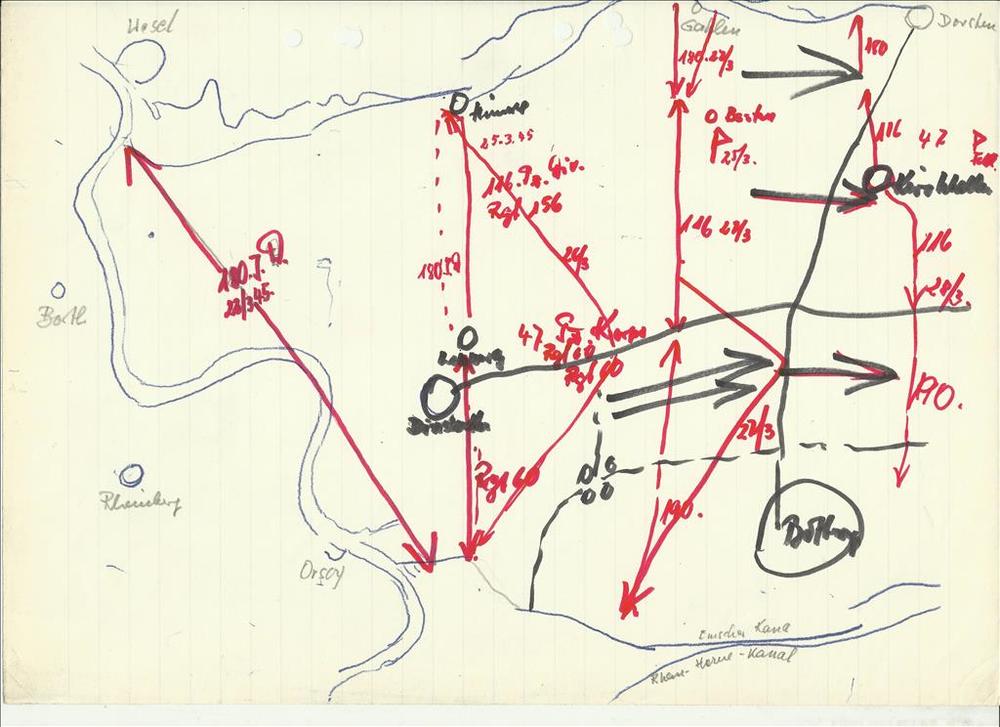 Wesel
Gahlen
Dorsten
180 27/3
180
Hünxe
25.3.45
Besten
25/3.
116
47. P
116. Pz. Div.
Rgt 156
Kirchhellen
180. I.D.
22/3.45.
26/3
116 27/3
116
28/3.
Borth
47. Pz. Korps
Rgt 60
Rgt 60
Dinslaken
190.
Rgt 60
27/3
190.
Rheinberg
Bottrop
Orsoy
Emscher Kanal
Rhein-Herne-Kanal